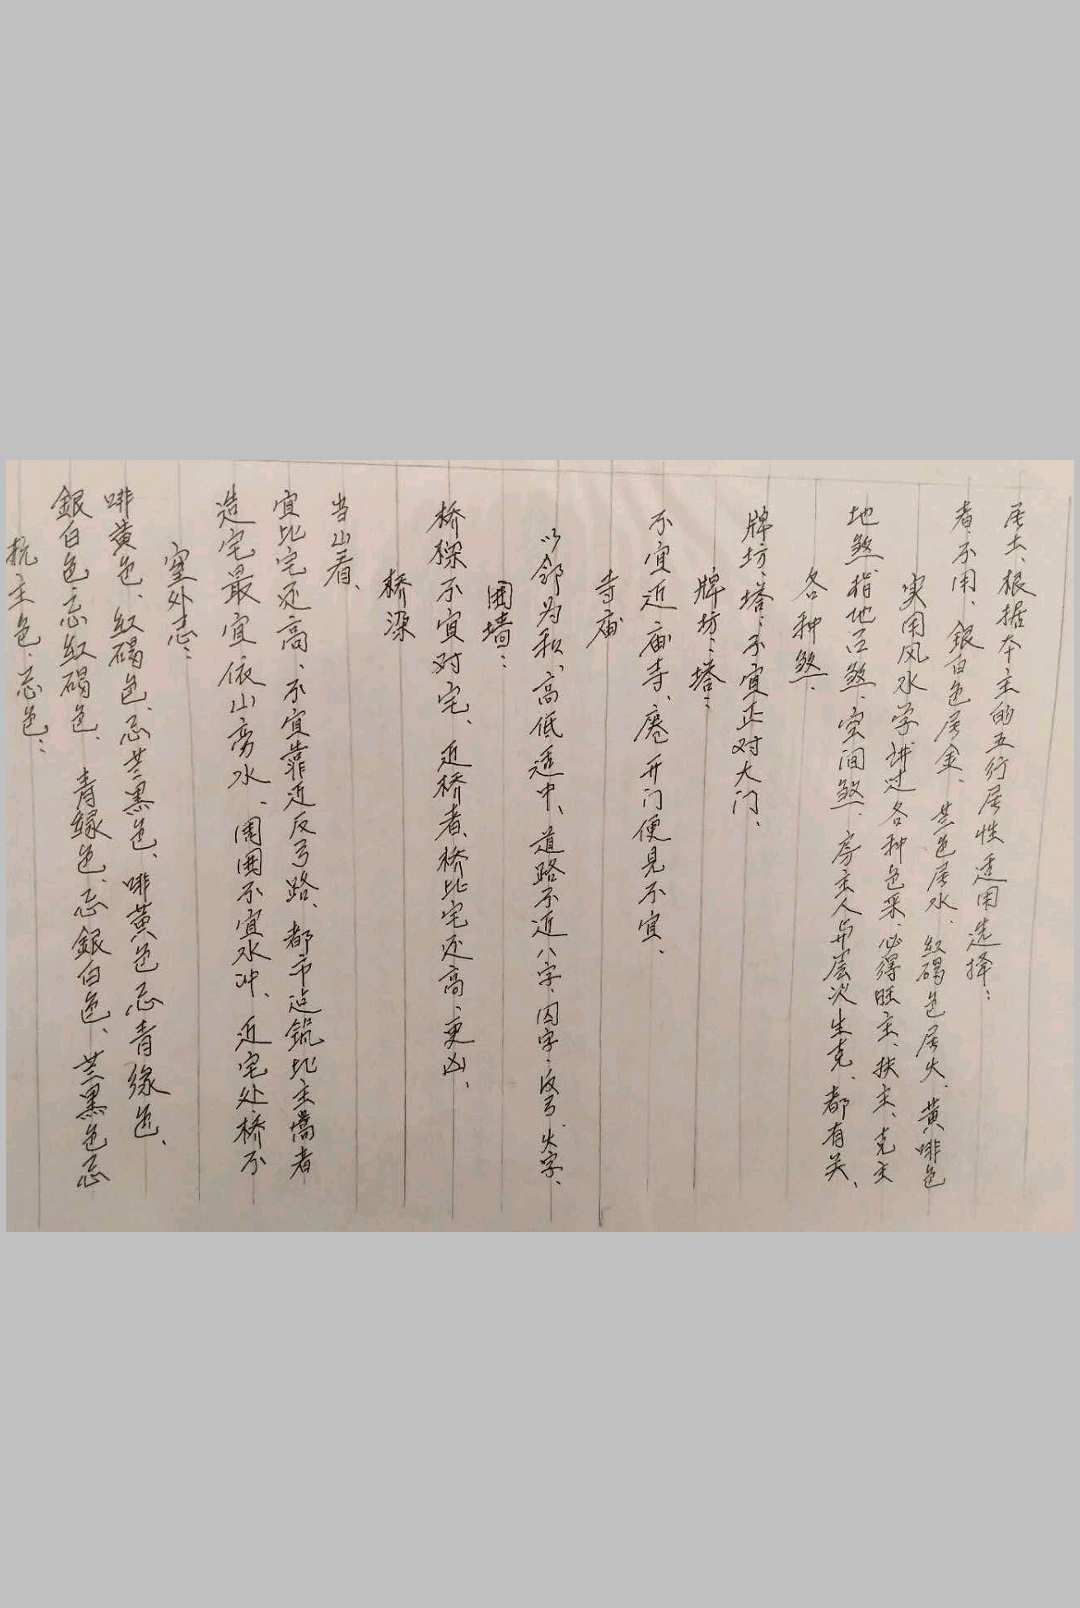 抗主色、忌色：
銀白色忌红碣色、青緣色、忌銀白色、兰黑色忌
啡黄色、红碣色、忌兰黑色、啡黄色忌青緣色、
室外志：
造宅最宜依山旁水、周围不宜水冲、近宅处桥不
宜比宅还高、不宜靠近反弓路、都市边筑比主高者
当山看、
桥梁
桥探不宜对宅、近桥者、桥比宅还高、更凶、
围墙：
以邻为和、高低适中、道路不近八字、囚字、反弓、火字、
寺庙
不宜近庙寺、开门便见不宜、
牌坊、塔：
牌坊、塔：不宜正对大门、
各种煞、
地煞指地名煞、空间煞、房主人与层次生克、都有关、
实用风水学讲过各种色采、必得旺主、扶主、克主
者不用、銀白色属金、兰色属水、红碣色属火、黄啡色
属土、根据本主的五行属性适用选择：